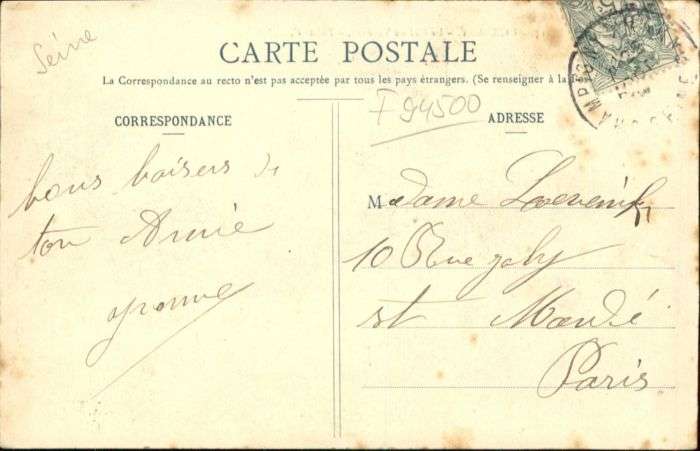 Seine
CARTE POSTALE
La Correspondance au recto n'est pas acceptée par tous les pays étrangers. (Se renseigner à la
F 94500
CORRESPONDANCE
bons baisers de
ton Amie
yvonne
ADRESSE
Madame
10 Rue jaly
st Mandé
Paris